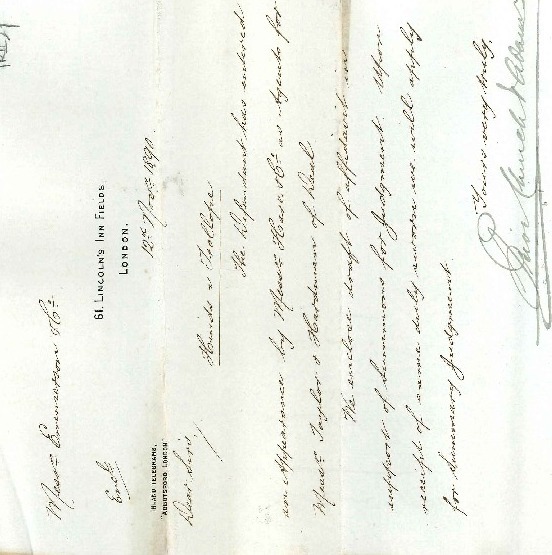 Messrs Emmerson & Co.
Encl.
61, LINCOLN'S INN FIELDS.
LONDON.
12th Novr. 1890.
INLAND TELEGRAMS.
"ABBOTSFORD LONDON"
Dear Sirs,
Hounds & Trollope
The Defendant has entered
an appearance by Messrs Hare & Co. as Agents for
Messrs Taylor & Hardman of Deal
We enclose draft of affidavit in
support of Summons for Judgment. Upon
receipt of same duly sworn we will apply
for Summary Judgment.
Yours very truly,